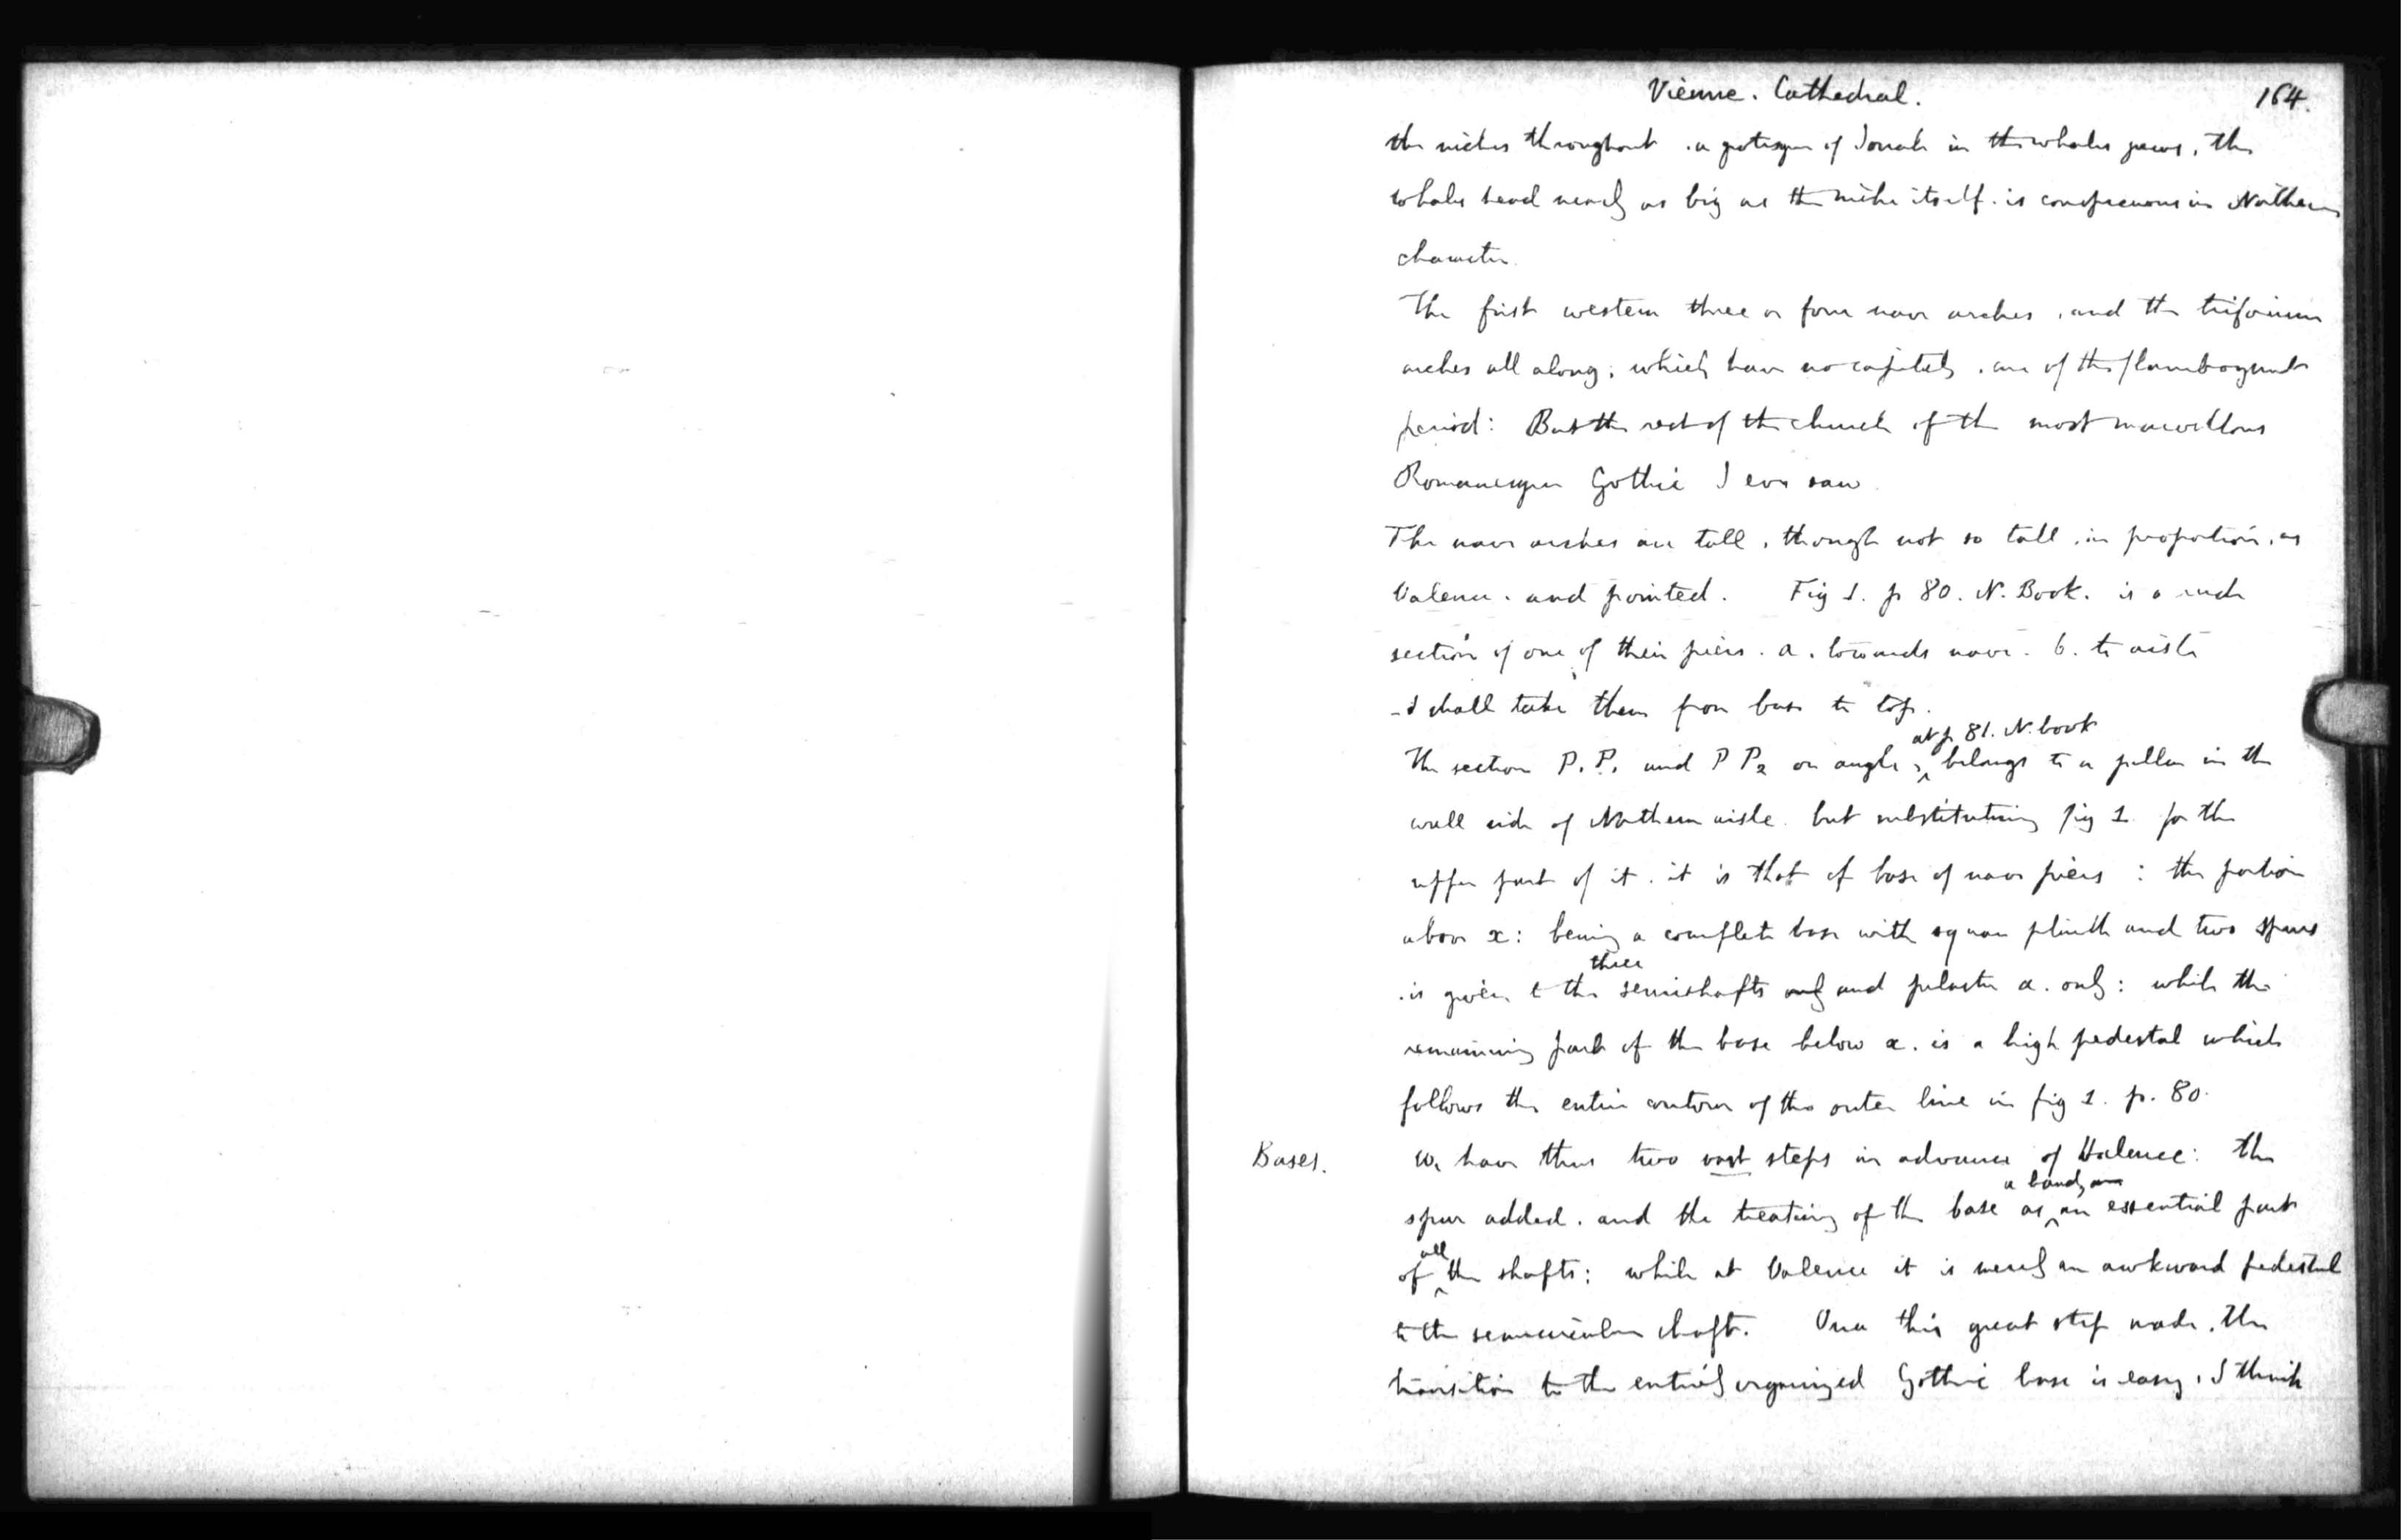 Vienne. Cathedral. 164.
the niches throughout . a grotesque of Jonah in the whales jaws, the
whales head nearly as big as the niche itself. is conspicuous in Northern
character.
The first western three or four nave arches , and the triforium
arches all along; which have no capitals . are of the flamboyant
period: But the rest of the church of the most marvellous
Romanesque Gothic I ever saw.
The nave arches are tall , though not so tall , in proportion, as
Valence . and pointed. Fig 1. p 80. N. Book. is a rude
section of one of their piers. a. towards nave. b. to aisle
- I shall take them from base to top.
at p 81. N. book
The section P. P, and P P2 on angle, belongs to a pillar in the
wall side of Northern aisle. but substituting fig 1. for the
upper part of it. it is that of base of nave piers : the portion
above x: being a complete base with square plinth and two spurs
three
. is given to the semishafts only and pilaster a. only: while the
remaining part of the base below x. is a high pedestal which
follows the entire contour of the outer line in fig 1. p. 80.
Bases. We have thus two vast steps in advance of Valence: the
a band, an
spur added. and the treating of the base as an essential part
all
of the shafts: while at Valence it is merely an awkward pedestal
to the semicircular shaft. Once this great step made, the
transition to the entirely organized Gothic base is easy, I think